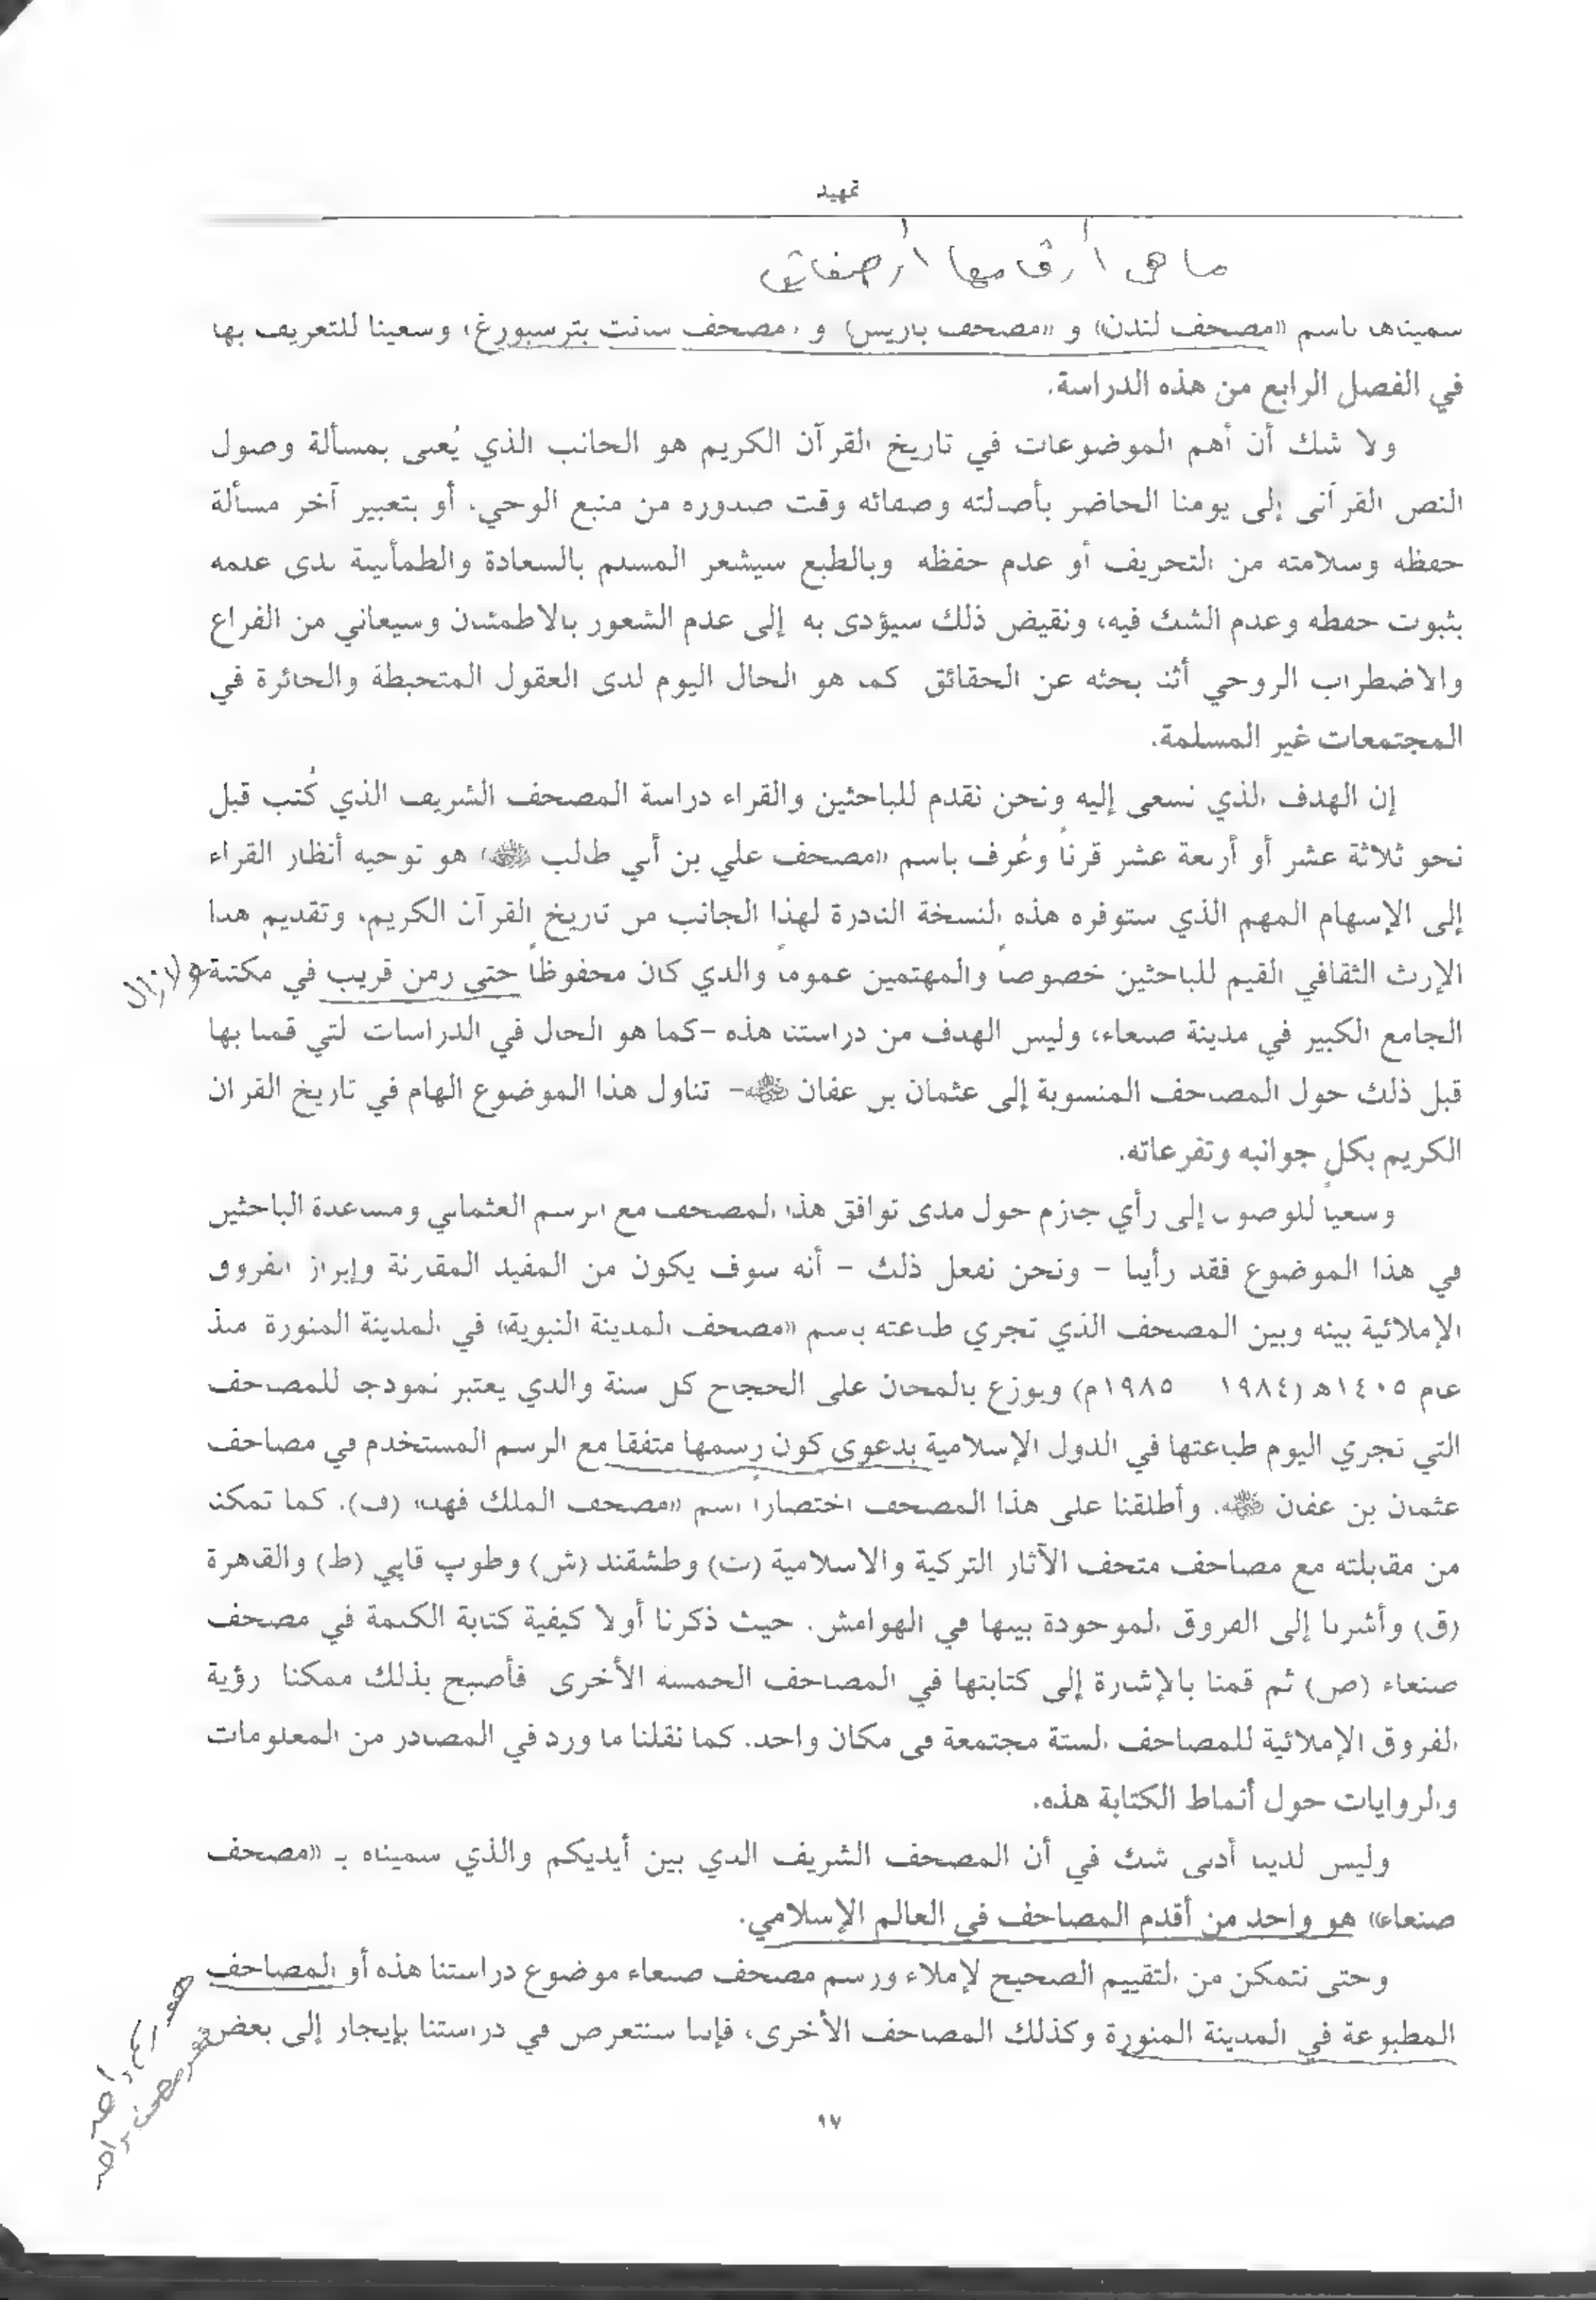 تمهيد
ما هي أرقامها أو صفاتها
سميناها باسم «مصحف لندن» و «مصحف باريس» و «مصحف سانت بترسبورغ» وسعينا للتعريف بها
في الفصل الرابع من هذه الدراسة.
ولا شك أن أهم الموضوعات في تاريخ القرآن الكريم هو الجانب الذي يُعنى بمسألة وصول
النص القرآني إلى يومنا الحاضر بأصالته وصفائه وقت صدوره من منبع الوحي، أو بتعبير آخر مسألة
حفظه وسلامته من التحريف أو عدم حفظه وبالطبع سيشعر المسلم بالسعادة والطمأنينة لدى علمه
بثبوت حفظه وعدم الشك فيه، ونقيض ذلك سيؤدى به إلى عدم الشعور بالاطمئنان وسيعاني من الفراغ
والاضطراب الروحي أثناء بحثه عن الحقائق كما هو الحال اليوم لدى العقول المتخبطة والحائرة في
المجتمعات غير المسلمة.
إن الهدف الذي نسعى إليه ونحن نقدم للباحثين والقراء دراسة المصحف الشريف الذي كُتب قبل
نحو ثلاثة عشر أو أربعة عشر قرناً وعُرف باسم «مصحف علي بن أبي طالب ﷺ» هو توجيه أنظار القراء
إلى الإسهام المهم الذي ستوفره هذه النسخة النادرة لهذا الجانب من تاريخ القرآن الكريم، وتقديم هذا
الإرث الثقافي القيم للباحثين خصوصاً والمهتمين عموماً والذي كان محفوظاً حتى زمن قريب في مكتبة ولازال
الجامع الكبير في مدينة صنعاء، وليس الهدف من دراستنا هذه -كما هو الحال في الدراسات التي قمنا بها
قبل ذلك حول المصاحف المنسوبة إلى عثمان بن عفان ﷺ- تناول هذا الموضوع الهام في تاريخ القرآن
الكريم بكل جوانبه وتفرعاته.
وسعياً للوصول إلى رأي جازم حول مدى توافق هذا المصحف مع الرسم العثماني ومساعدة الباحثين
في هذا الموضوع فقد رأينا - ونحن نفعل ذلك - أنه سوف يكون من المفيد المقارنة وإبراز الفروق
الإملائية بينه وبين المصحف الذي تجري طباعته باسم «مصحف المدينة النبوية» في المدينة المنورة منذ
عام ١٤٠٥هـ (١٩٨٤ ١٩٨٥م) ويوزع بالمجان على الحجاج كل سنة والذي يعتبر نموذجا للمصاحف
التي تجري اليوم طباعتها في الدول الإسلامية بدعوى كون رسمها متفقا مع الرسم المستخدم في مصاحف
عثمان بن عفان ﷺ. وأطلقنا على هذا المصحف اختصاراً اسم «مصحف الملك فهد» (ف). كما تمكنا
من مقابلته مع مصاحف متحف الآثار التركية والاسلامية (ت) وطشقند (ش) وطوپ قاپي (ط) والقاهرة
(ق) وأشرنا إلى الفروق الموجودة بينها في الهوامش. حيث ذكرنا أولا كيفية كتابة الكلمة في مصحف
صنعاء (ص) ثم قمنا بالإشارة إلى كتابتها في المصاحف الخمسة الأخرى فأصبح بذلك ممكنا رؤية
الفروق الإملائية للمصاحف الستة مجتمعة في مكان واحد. كما نقلنا ما ورد في المصادر من المعلومات
والروايات حول أنماط الكتابة هذه.
وليس لدينا أدنى شك في أن المصحف الشريف الذي بين أيديكم والذي سميناه بـ «مصحف
صنعاء» هو واحد من أقدم المصاحف في العالم الإسلامي.
وحتى نتمكن من التقييم الصحيح لإملاء ورسم مصحف صنعاء موضوع دراستنا هذه أو المصاحف
المطبوعة في المدينة المنورة وكذلك المصاحف الأخرى، فإننا سنتعرض في دراستنا بإيجاز إلى بعض
مصحف واحد
١٧